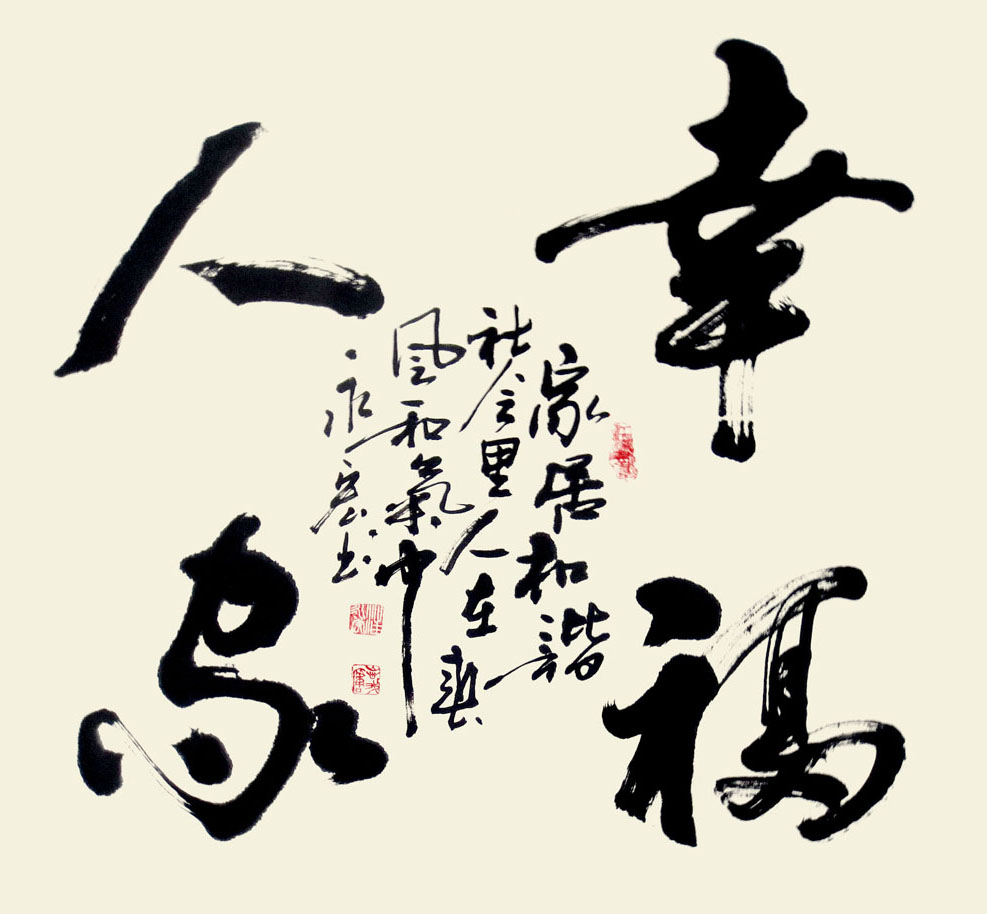 幸福
人家
家居和諧
社会里人在春
风和氣中
永宏书